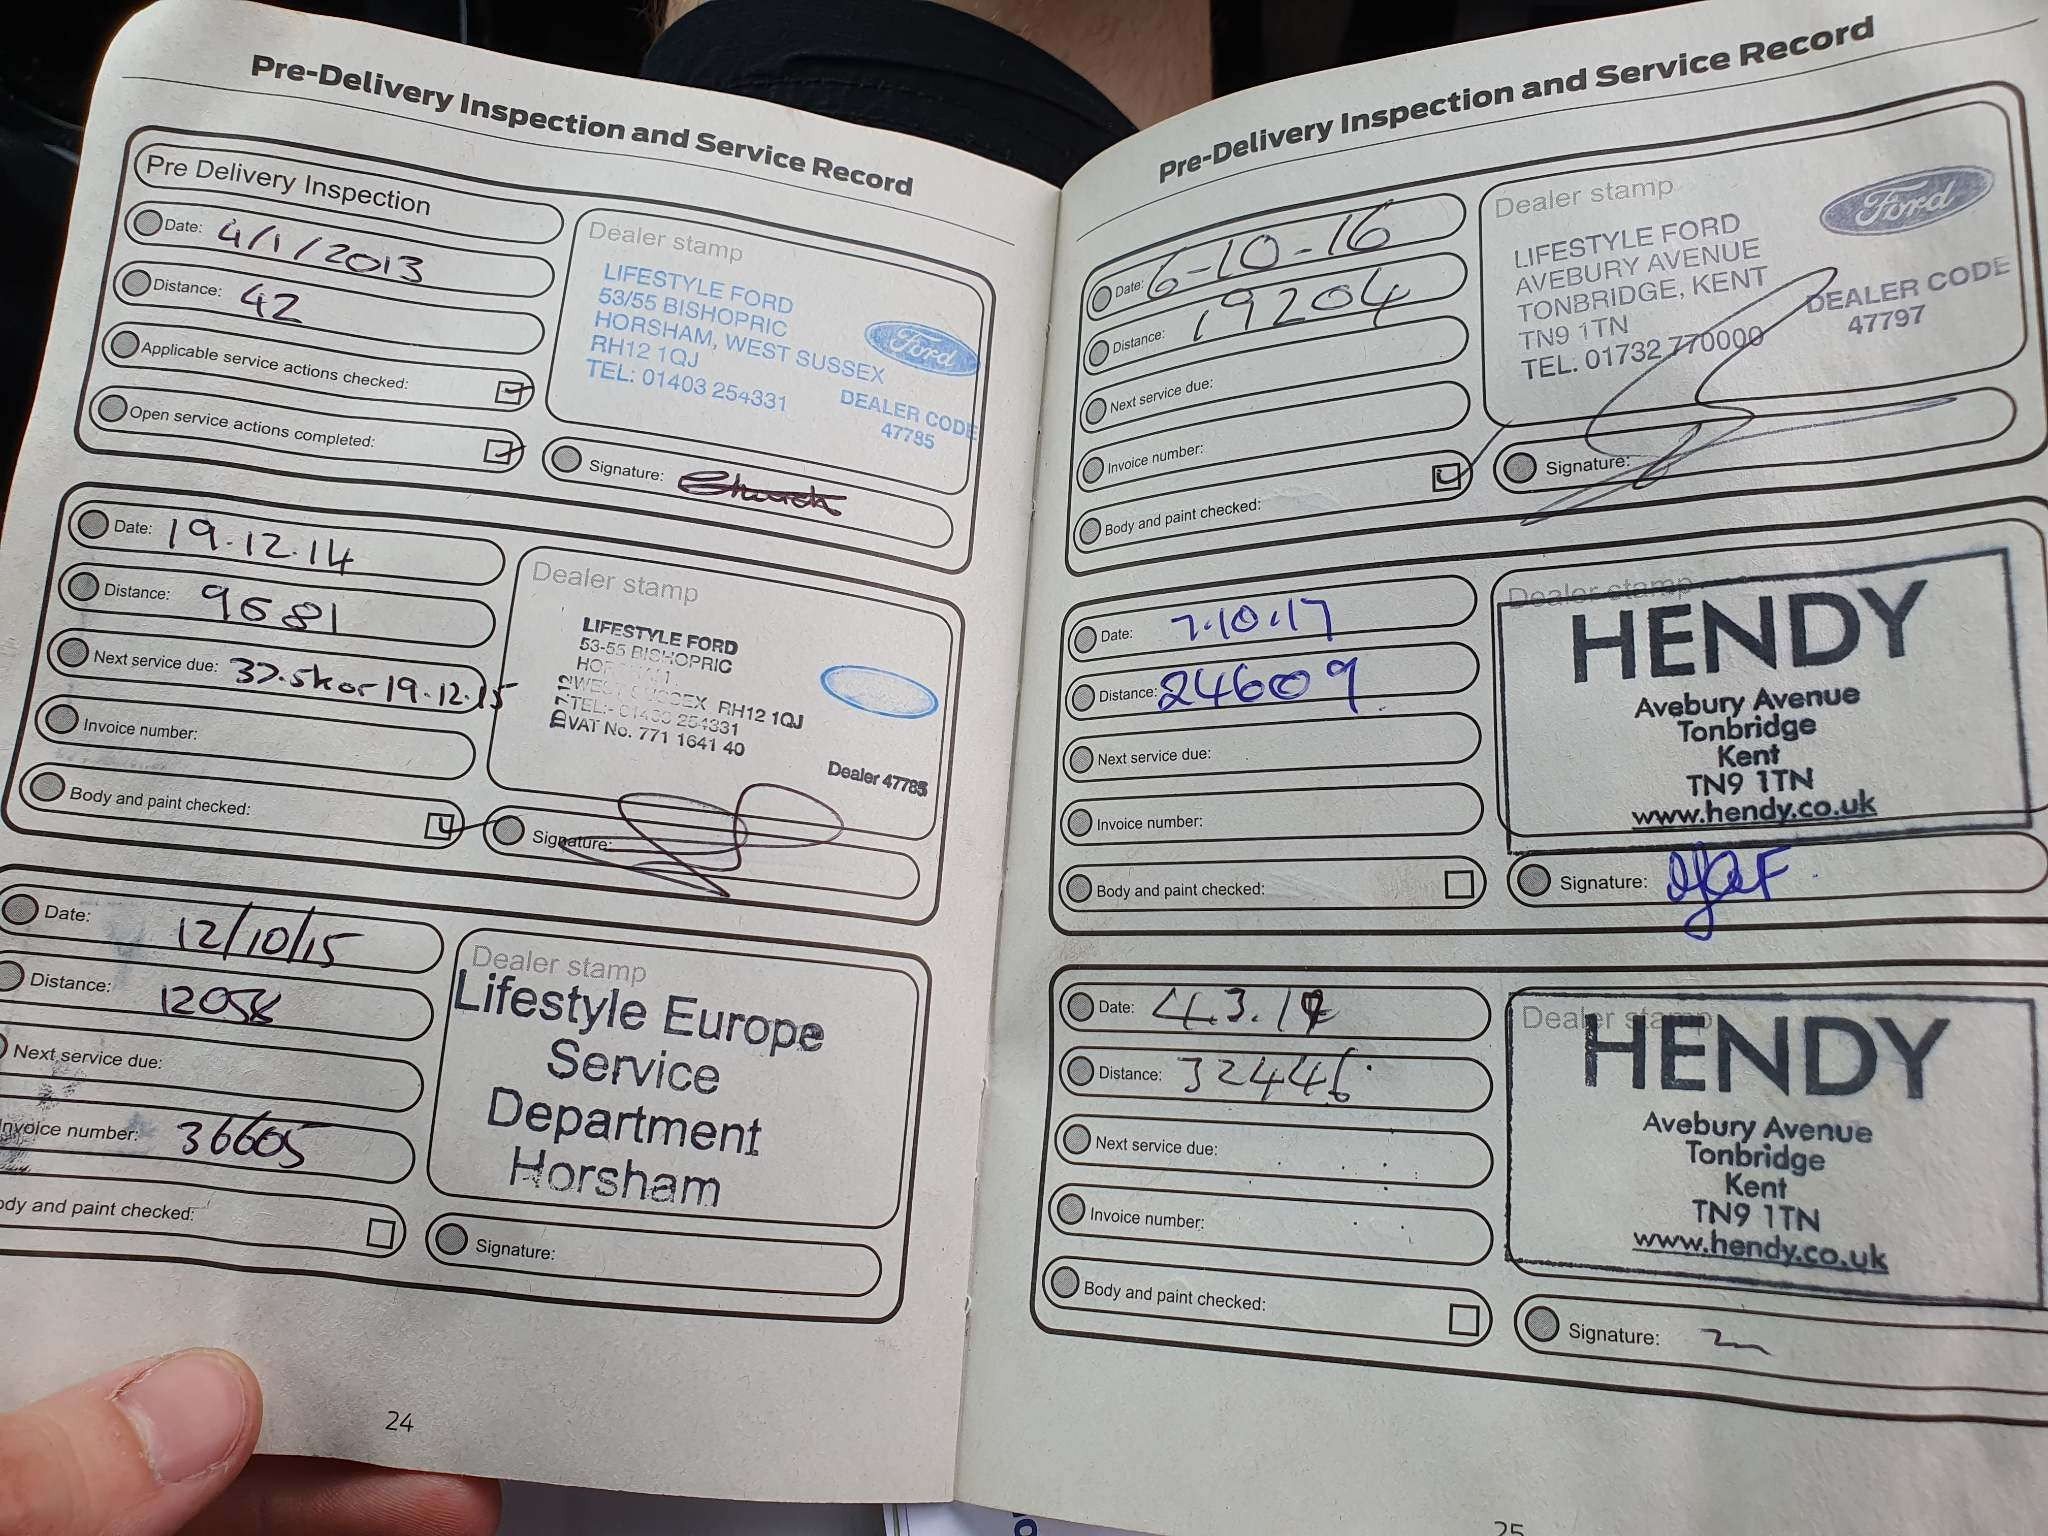 Pre-Delivery Inspection and Service Record
Pre Delivery Inspection
Date: 4/1/2013
Distance: 42
Applicable service actions checked:
Open service actions completed:
Dealer stamp
LIFESTYLE FORD
53/55 BISHOPRIC
HORSHAM, WEST SUSSEX
RH12 1QJ
TEL: 01403 254331
Ford
DEALER CODE
47785
Signature:
Date: 19.12.14
Distance: 9681
Next service due: 37.5k or 19.12.15
Invoice number:
Body and paint checked:
Dealer stamp
LIFESTYLE FORD
53-55 BISHOPRIC
WEST SUSSEX RH12 1QJ
TEL:- 01403 254331
VAT No. 771 1641 40
Dealer 47785
Signature:
Date: 12/10/15
Distance: 12058
Next service due:
Invoice number: 36605
ody and paint checked:
Dealer stamp
Lifestyle Europe
Service
Department
Horsham
Signature:
24
Pre-Delivery Inspection and Service Record
Date: 6-10-16
Distance: 19204
Next service due:
Invoice number:
Body and paint checked:
Dealer stamp
Ford
LIFESTYLE FORD
AVEBURY AVENUE
TONBRIDGE, KENT
TN9 1TN
TEL: 01732 770000
DEALER CODE
47797
Signature:
Date: 7.10.17
Distance: 24609
Next service due:
Invoice number:
Body and paint checked:
Dealer stamp
HENDY
Avebury Avenue
Tonbridge
Kent
TN9 1TN
www.hendy.co.uk
Signature:
Date:
Distance: 32446
Next service due:
Invoice number:
Body and paint checked:
Dealer stamp
HENDY
Avebury Avenue
Tonbridge
Kent
TN9 1TN
www.hendy.co.uk
Signature:
25